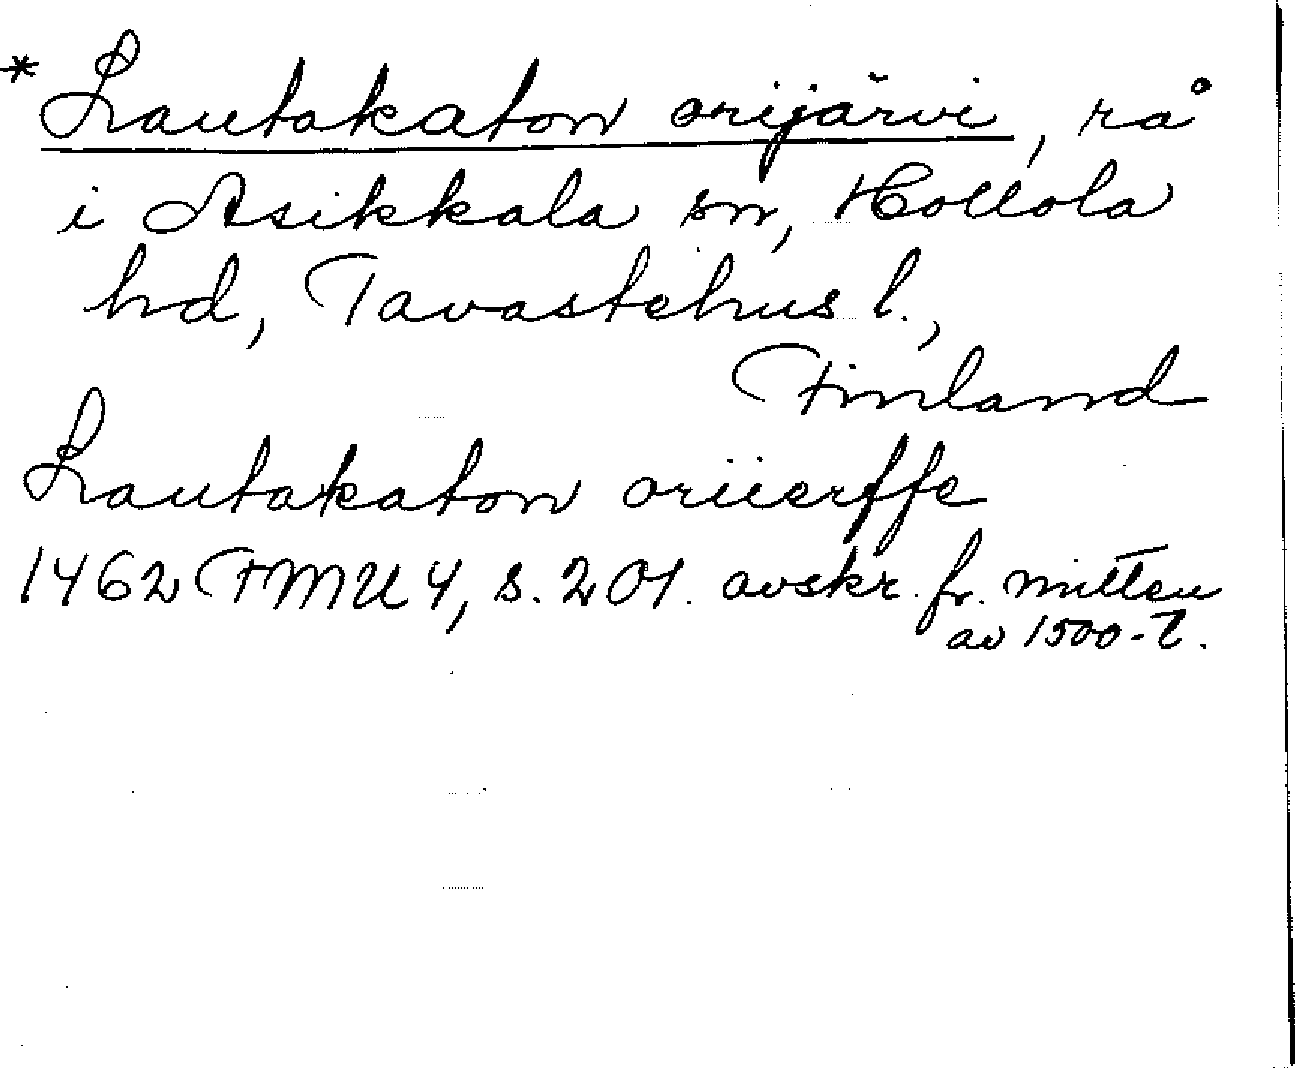 * Lautakaton orijärvi, rå
i Asikkala sn, Hollola
hd, Tavastehus l.,
Finland
Lautakaton oriierffe
1462 FMU 4, s. 201. avskr. fr. mitten
av 1500-t.